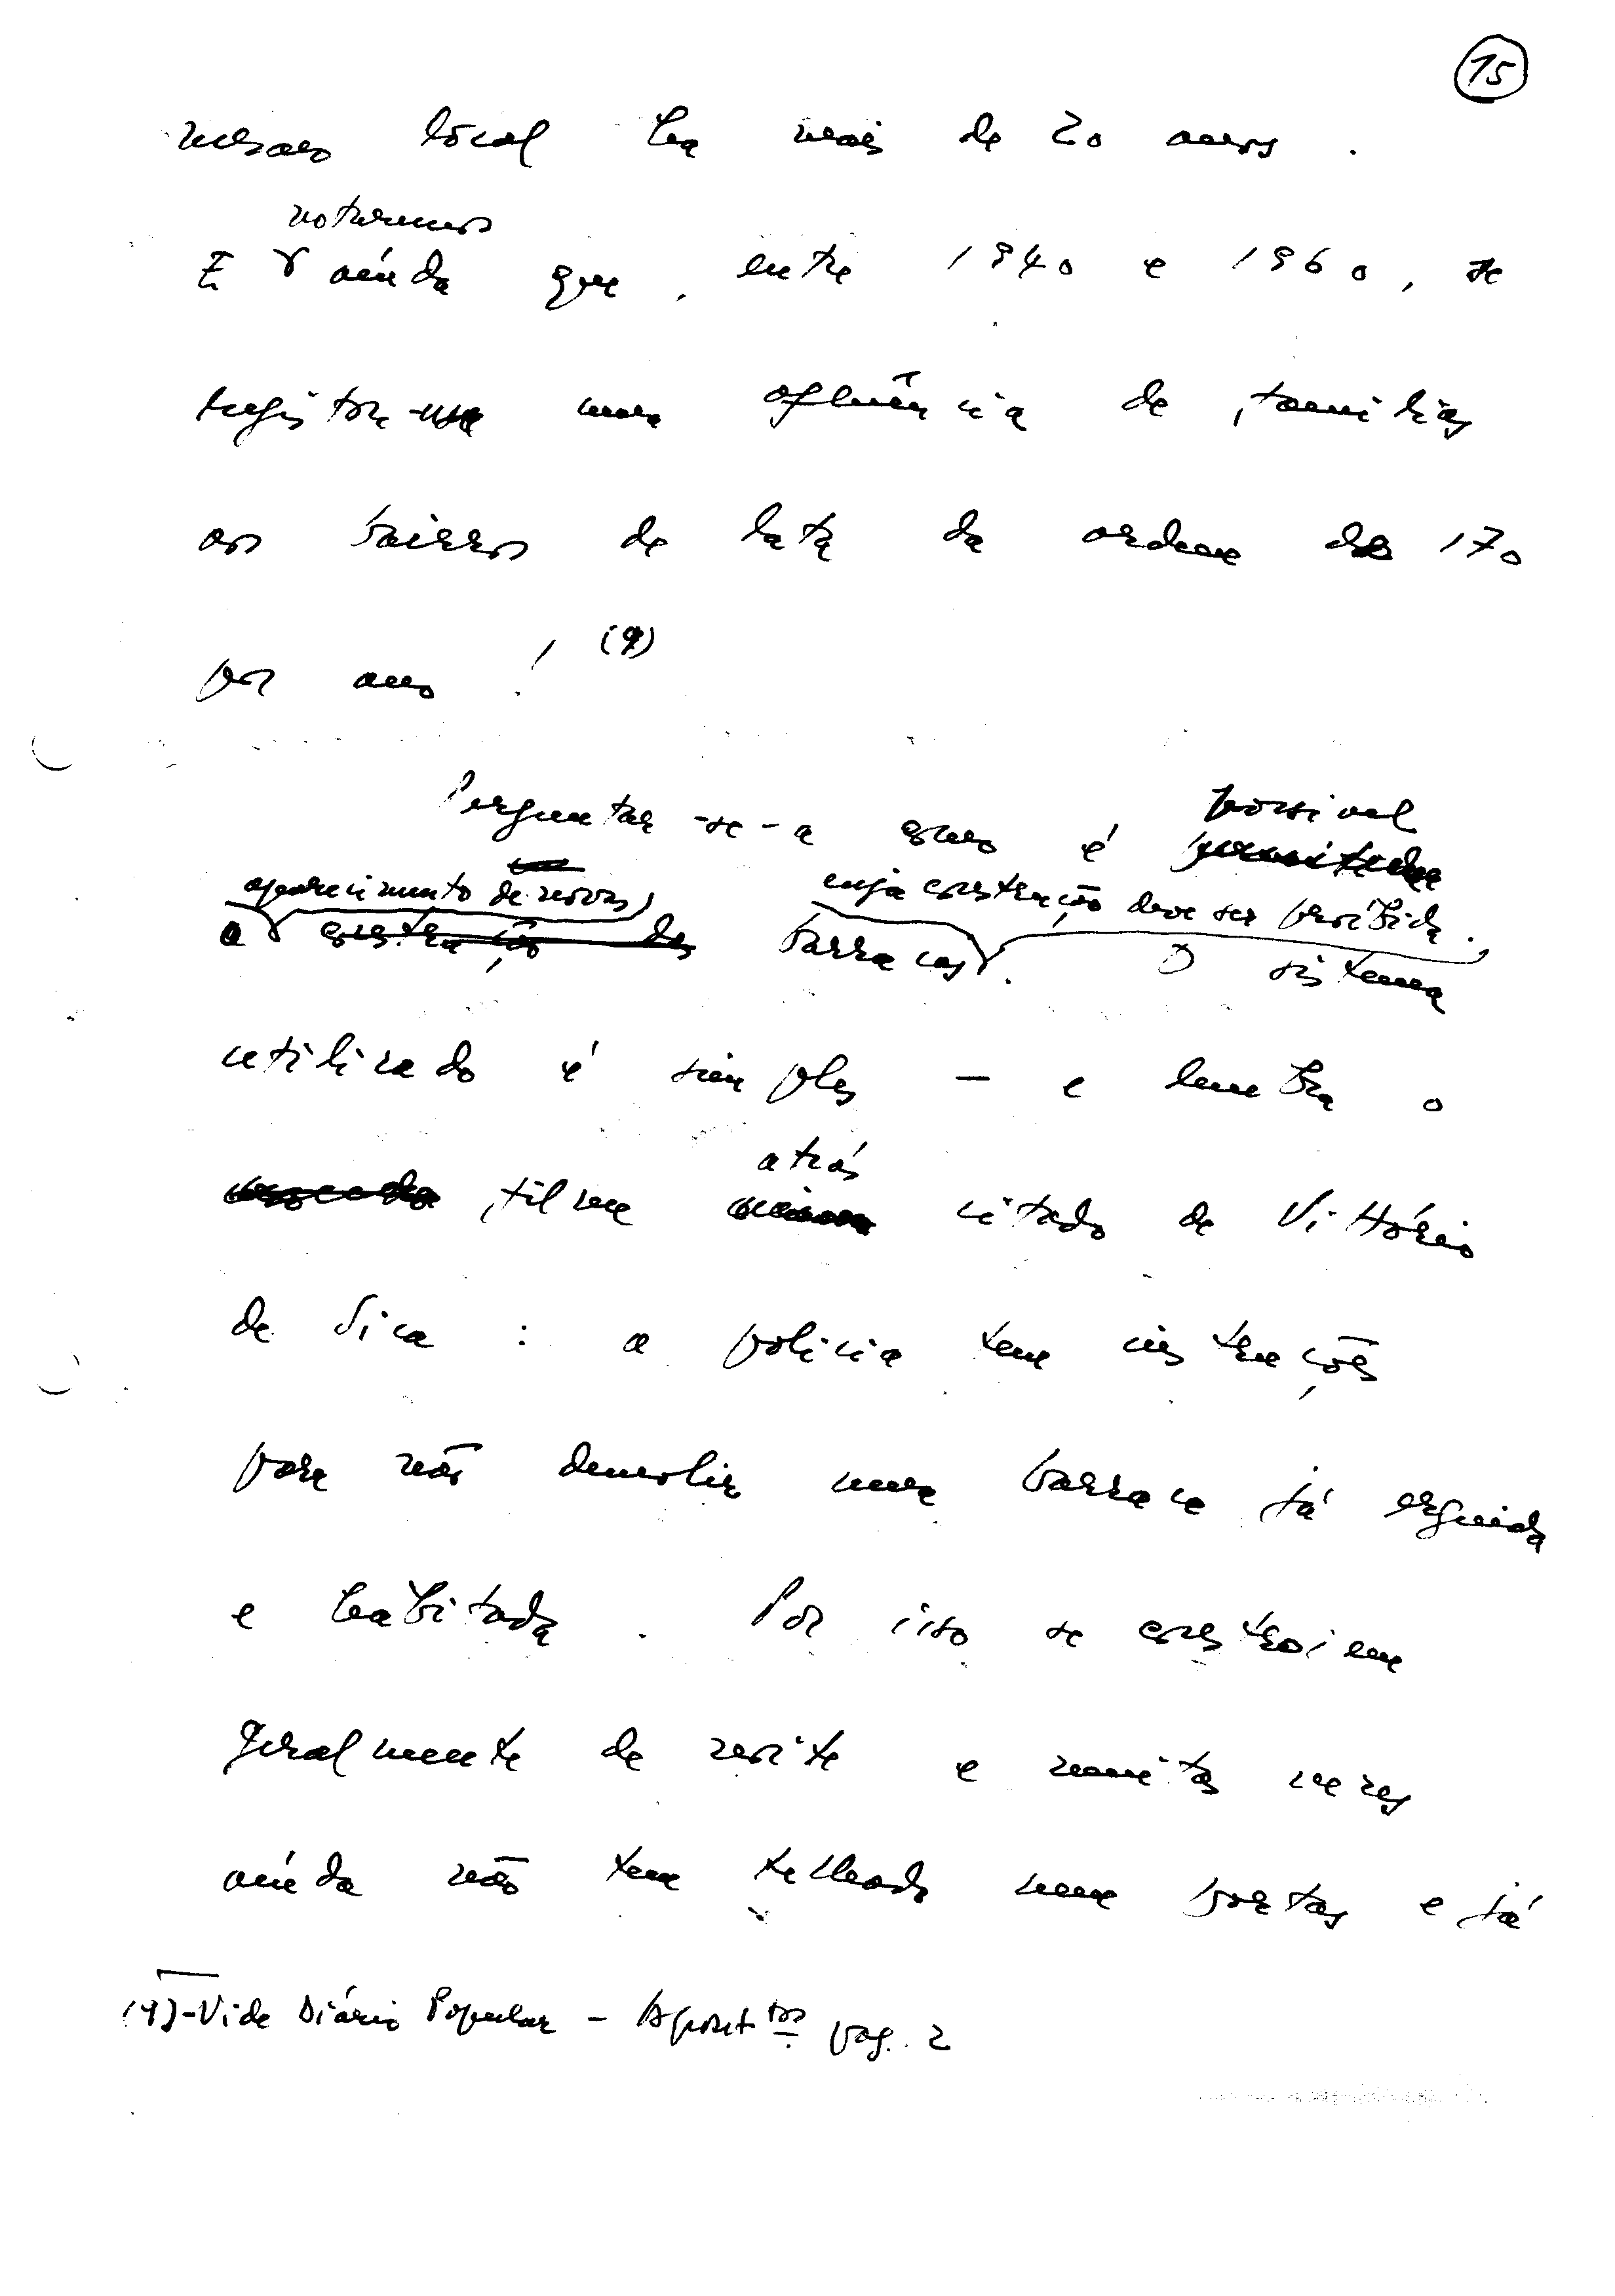 15
mesmo local há mais de 20 anos.
notaremos
E ainda que, entre 1940 e 1960, se
registou uma afluência de famílias
aos bairros de lata da ordem das 170
por ano! (9)
Perguntar-se-á como é possível
aparecimento de novas cuja construção deve ser proibida.
o construção de barracas. O sistema
utilizado é simples - e lembra o
atrás
filme citado de Vittório
de Sica: a polícia tem instruções
para não demolir uma barraca já erguida
e habitada. Por isso se constroiem
geralmente de noite e muitas vezes
ainda não tem telhado nem portas e já
(9)-Vide Diário Popular - pág. 2